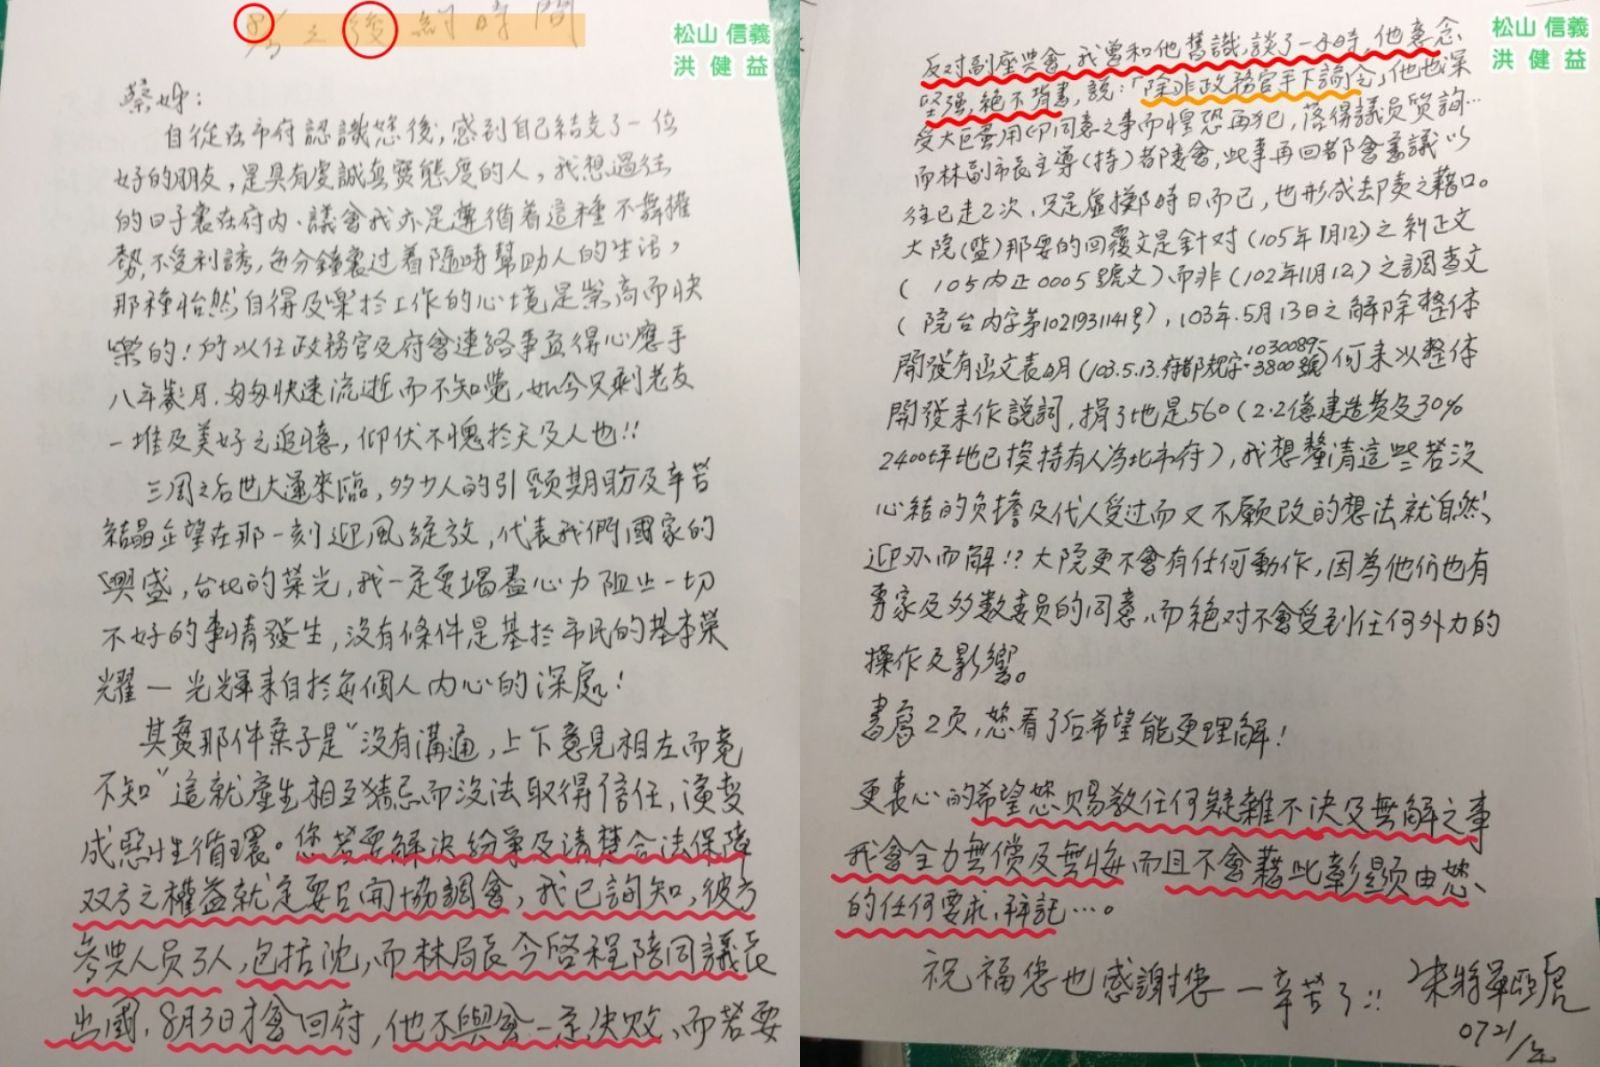 8/3之後細時間
松山 信義
洪健益
蔡姊：
自從在市府認識您後，感到自己結交了一位
好的朋友，是具有虔誠真實態度的人，我想過往
的日子裏在府內、議會我亦是遵循着這種不舞權
勢，不受利誘，每分鐘裏过着隨時幫助人的生活，
那種怡然自得及樂於工作的心境是崇高而快
樂的！所以任政務官及府會連絡事宜得心應手
八年歲月，匆匆快速流逝而不知覺，如今只剩老友
一堆及美好之追憶，仰伏不愧於天及人也!!
三周之后世大運來臨，多少人的引頸期盼及辛苦
結晶企望在那一刻迎風綻放，代表我們國家的
興盛，台北的榮光，我一定要竭盡心力阻止一切
不好的事情發生，沒有條件是基於市民的基本榮
耀一光輝來自於每個人內心的深處！
其實那件案子是“沒有溝通，上下意見相左而竟
不知”這就產生相互猜忌而沒法取得信任，演變
成惡性循環。您若要解決紛爭及清楚合法保障
双方之權益就定要召開協調會，我已詢知，彼方
參與人员3人，包括沈，而林局長今啓程陪同議長
出國，8月3日才會回府，他不與會一定失敗、而若要
松山 信義
洪健益
反对副座與會，我曾和他舊識，談了一小時，他意念
堅强，絕不背書，說：「除非政務官手下諭令」，他也深
受大巨蛋用印同意之事而惶恐再犯，落得議員質詢…
而林副市長主導(持)都委會，此事再回都會審議以
往已走2次，只是虛擲時日而已，也形成卸責之藉口。
大院(監)那要的回覆文是針对(105年1月12)之糾正文
(105內正0005號文)而非(102年11月12)之調查文
(院台內字第1021931141号)，103年.5月13日之解除整体
開發有函文表明(103.5.13.府都規字10300893800號)何來以整体
開發來作說詞，捐了地是560(2.2億建造費及30%
2400坪地已換持有人為北市府)，我想釐清這些若沒
心結的负擔及代人受过而又不願改的想法就自然、
迎刃而解!?大院更不會有任何動作，因為他們也有
專家及多數委員的同意，而絕对不會受到任何外力的
操作及影響。
書寫2页，您看了后希望能更理解！
更衷心的希望您賜教任何疑難不決及無解之事
我會全力無償及無悔而且不會藉此彰顯由您、
的任何要求，拜託…。
祝福您也感謝您一辛苦了!!
0721/